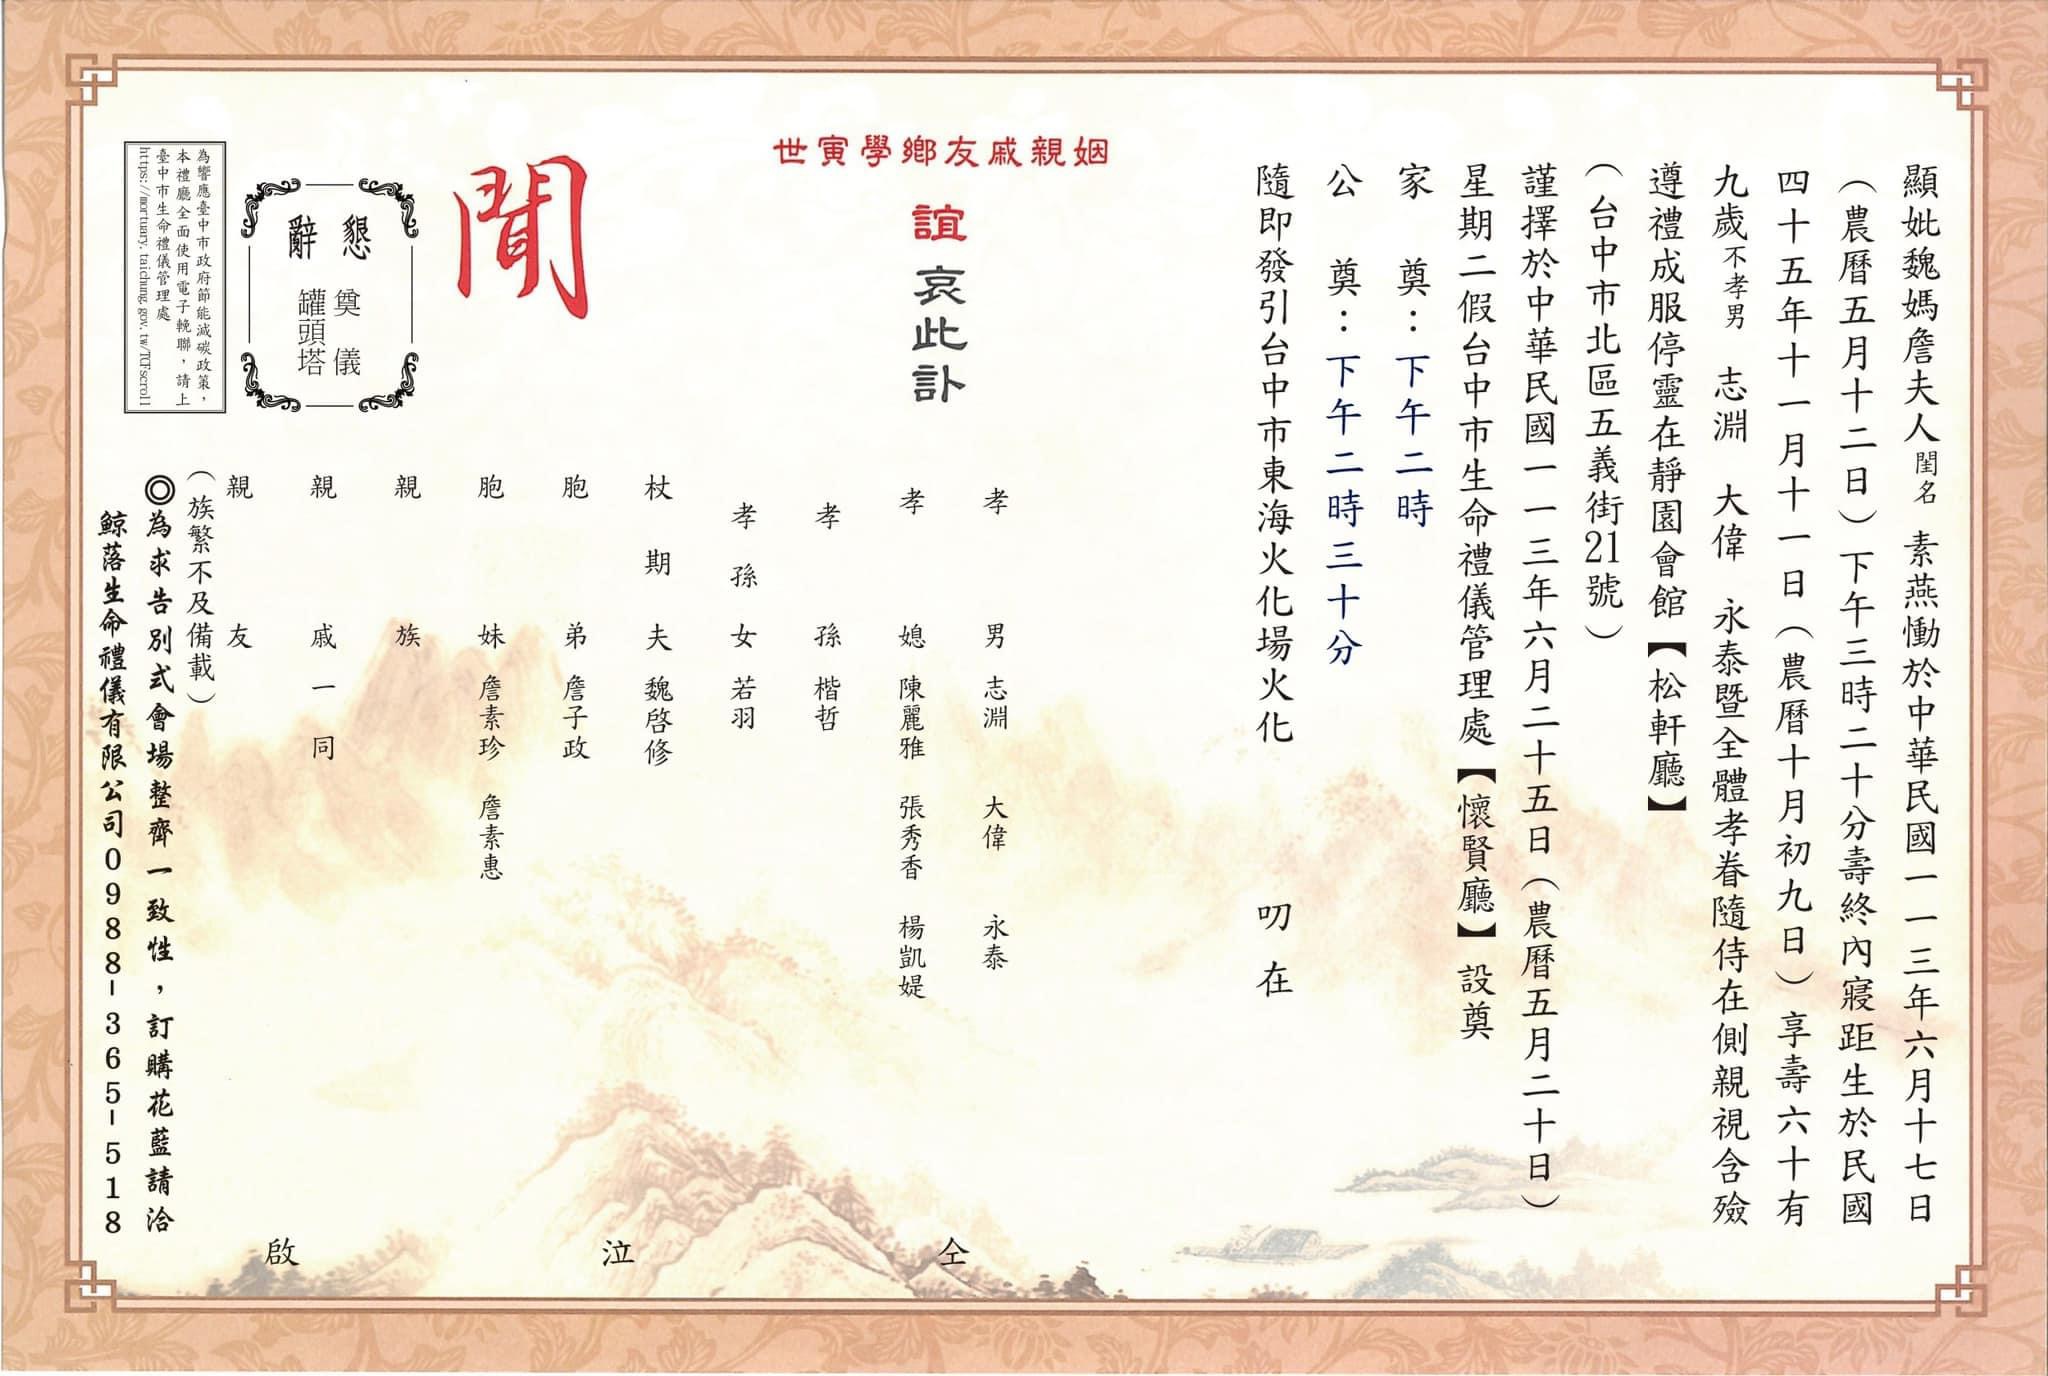 顯妣魏媽詹夫人閨名 素燕慟於中華民國一一三年六月十七日
（農曆五月十二日）下午三時二十分壽終內寢距生於民國
四十五年十一月十一日（農曆十月初九日）享壽六十有
九歲不孝男 志淵 大偉 永泰暨全體孝眷隨侍在側親視含殮
遵禮成服停靈在靜園會館【松軒廳】
（台中市北區五義街21號）
謹擇於中華民國一一三年六月二十五日（農曆五月二十日）
星期二假台中市生命禮儀管理處【懷賢廳】設奠
家 奠：下午二時
公 奠：下午二時三十分
隨即發引台中市東海火化場火化 叨在
姻親戚友鄉學寅世
誼哀此訃
聞
孝男 志淵 大偉 永泰
孝媳 陳麗雅 張秀香 楊凱媞
孝孫 楷哲
孝孫女 若羽
杖期夫 魏啓修
胞弟 詹子政
胞妹 詹素珍 詹素惠
親族
親戚一同
親友
（族繁不及備載）
仝泣啟
懇辭
奠儀
罐頭塔
為響應臺中市政府節能減碳政策，
本禮廳全面使用電子輓聯，請上
臺中市生命禮儀管理處
https://mortuary.taichung.gov.tw/TCFscroll
◎為求告別式會場整齊一致性，訂購花藍請洽
鯨落生命禮儀有限公司0988-365-518